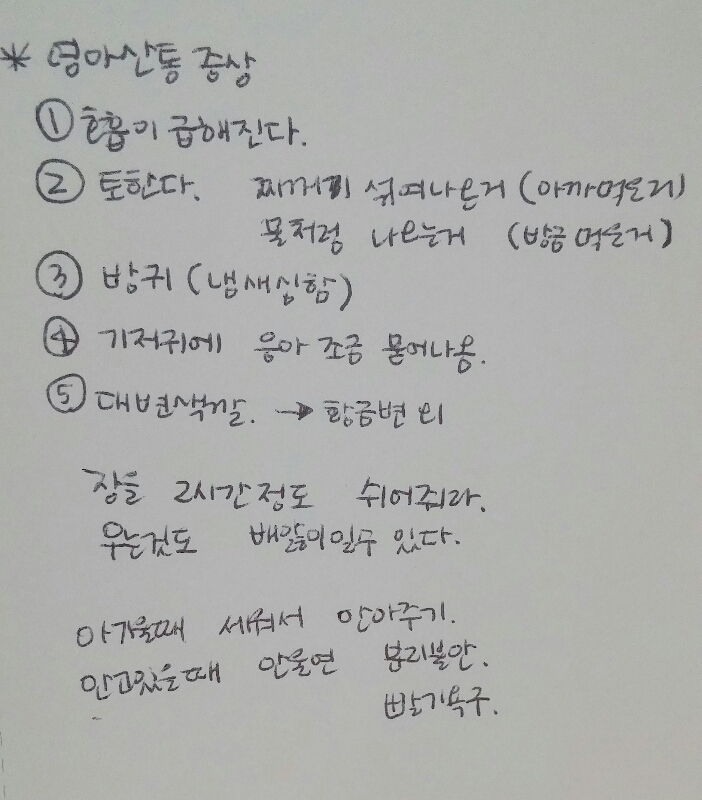 * 영아산통 증상
① 호흡이 급해진다.
② 토한다. 찌꺼기 섞여나온거 (아까먹은거)
물처럼 나오는거 (방금먹은거)
③ 방귀 (냄새심함)
④ 기저귀에 응아 조금 묻어나옴.
⑤ 대변색깔. → 황금변 외
장을 2시간정도 쉬어줘라.
우는것도 배앓이일수 있다.
아가울때 세워서 안아주기.
안고있을때 안울면 분리불안.
빨기욕구.